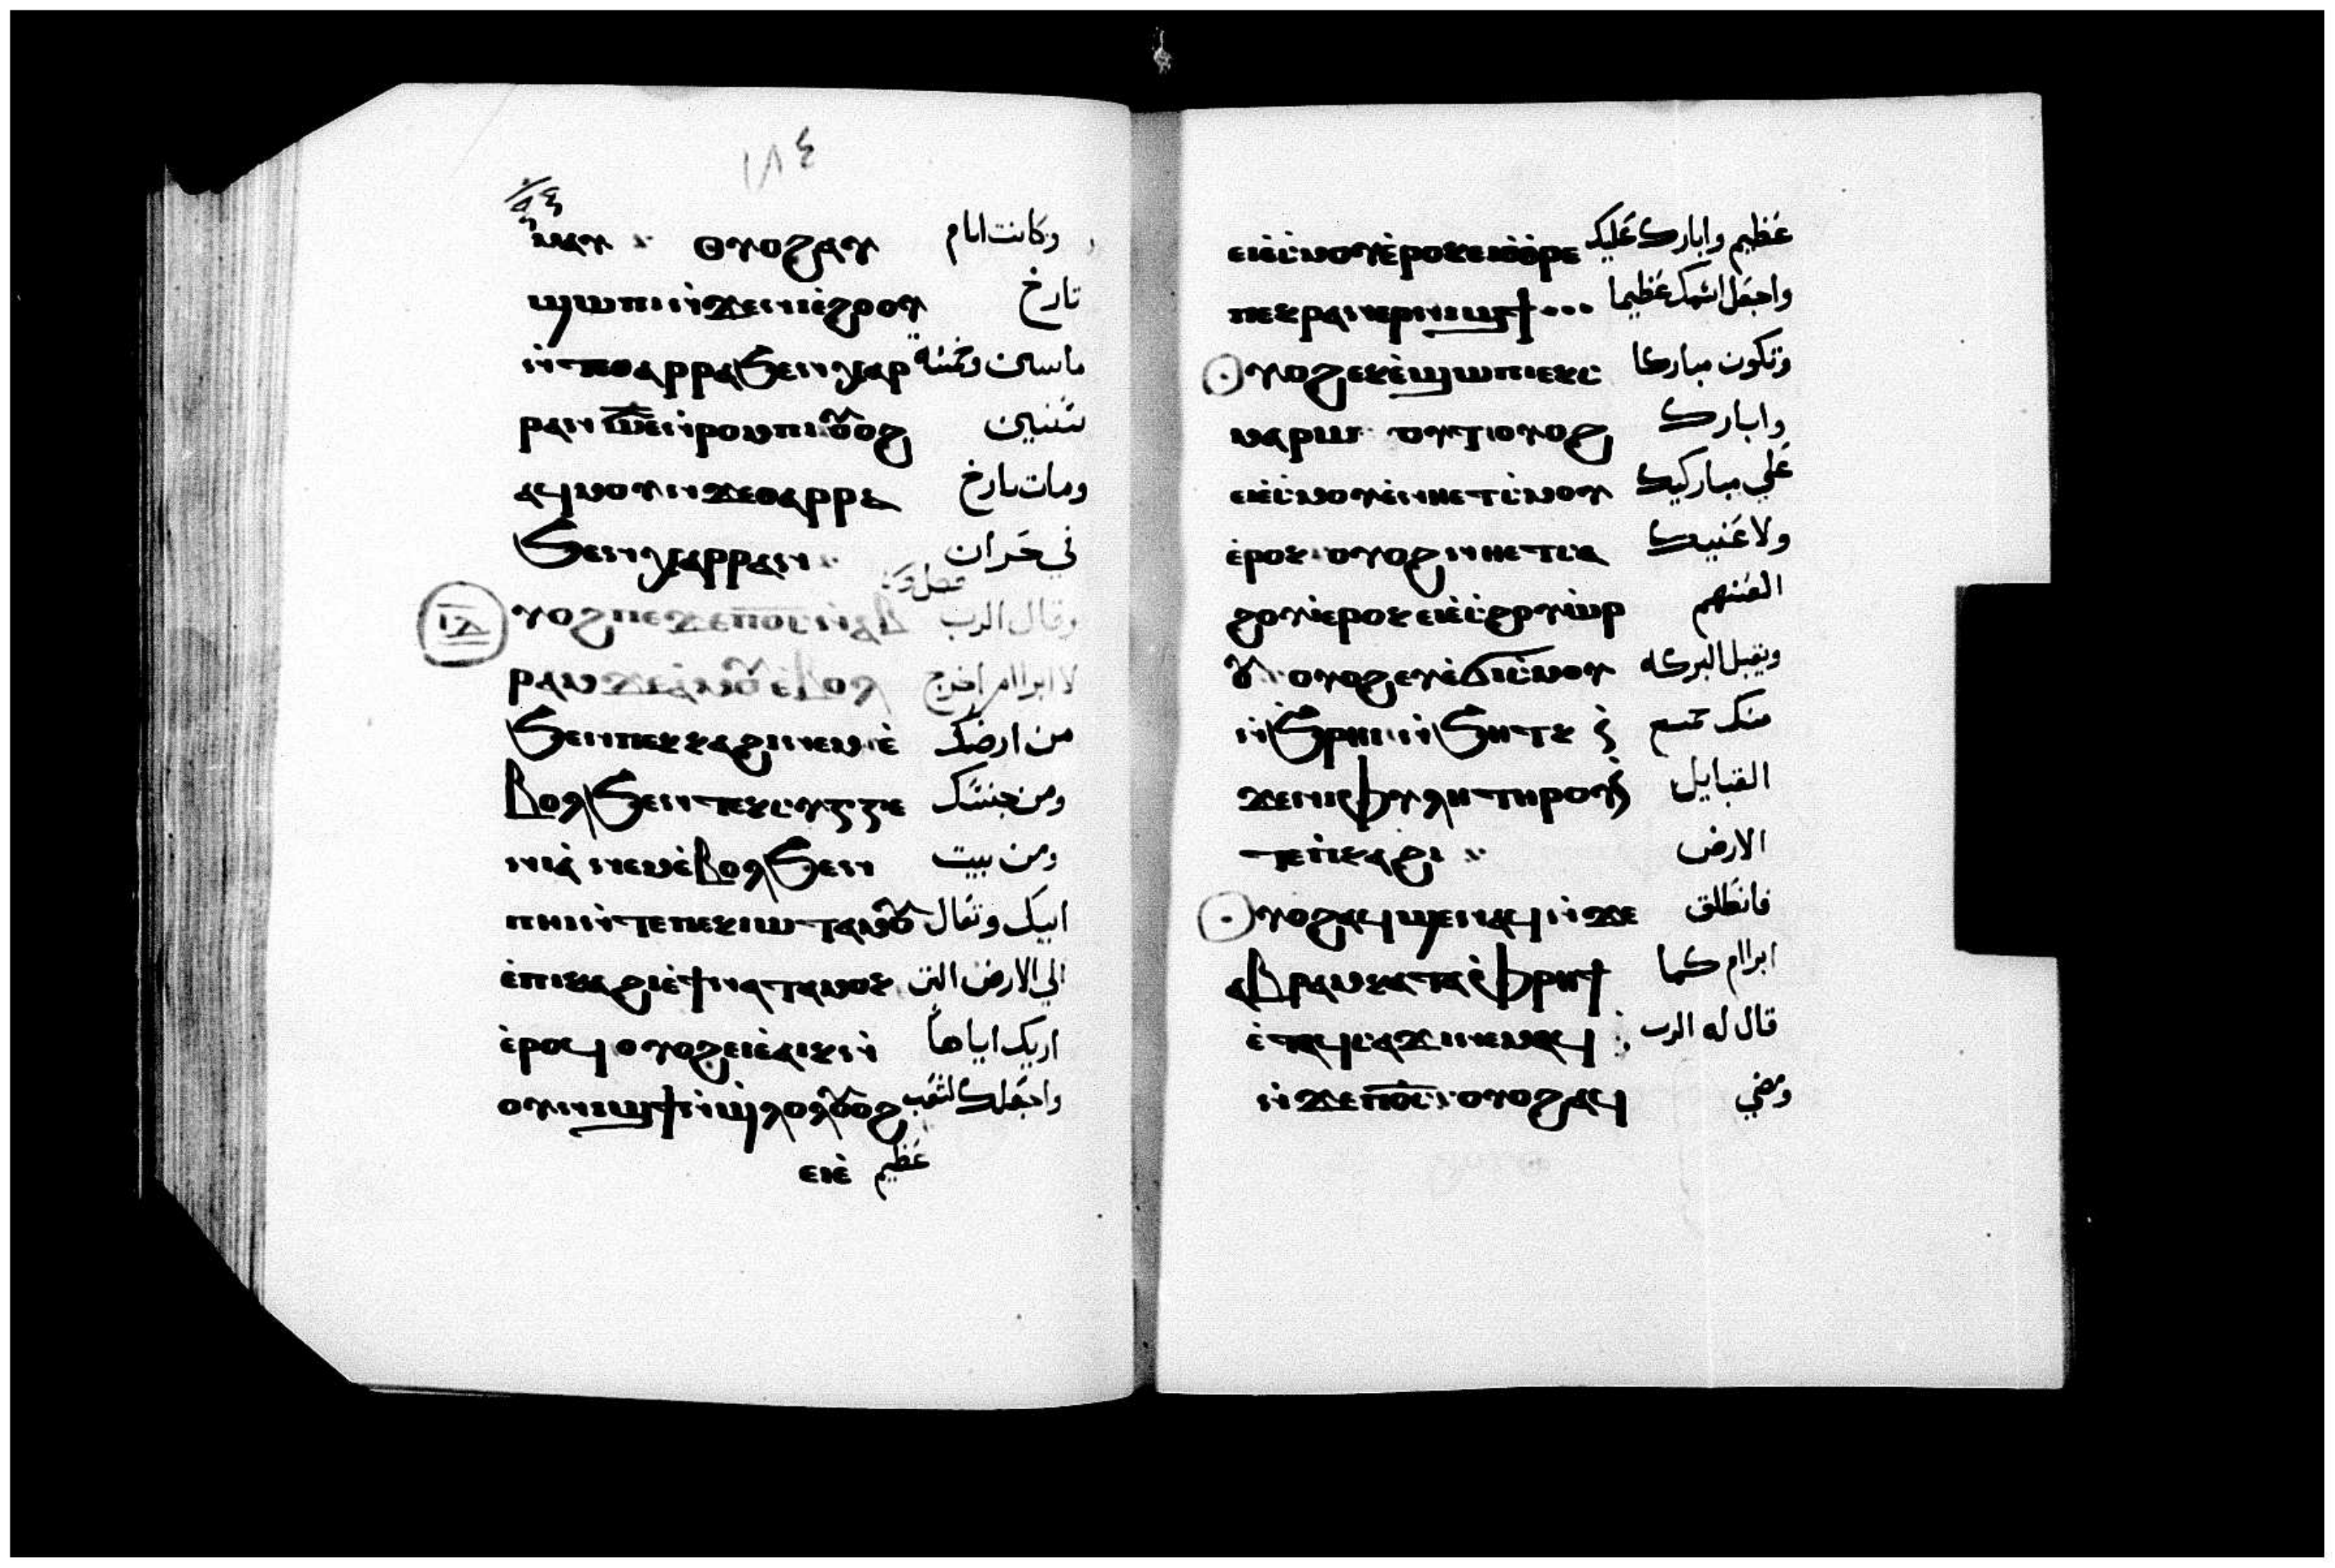 ١٨٤
ⲙⲙⲁⲩ ⁘ ⲟⲩⲟϩⲁⲩ وكانت ايام
ϣⲱⲡⲓⲛ̇ϫⲉⲛⲓⲉ̇ϩⲟⲟⲩ تارخ
ⲛ̇ⲧⲉⲑⲁⲣⲣⲁϧⲉⲛⲭⲁⲣ مايتين وخمسه
ⲣⲁⲛ ⲥ̅ⲉ̅ ⲛ̇ⲣⲟⲙⲡⲓⲟⲩⲟϩ سنين
ⲁϥⲙⲟⲩⲛϫⲉⲑⲁⲣⲣⲁ ومات تارخ
ϧⲉⲛⲭⲁⲣⲣⲁⲛ ⁘ في حران
ⲓ̅ⲃ̅ ⲟⲩⲟϩⲡⲉϫⲉⲡⲟ̅ⲥ̅ⲛ̇ⲁⲃ وقال الرب
ⲣⲁⲙϫⲉⲁ̇ⲙⲟⲩⲉ̇ⲃⲟⲗ لابرام اخرج
ϧⲉⲛⲡⲉⲕⲕⲁϩⲓⲛⲉⲙⲉ̇ من ارضك
ⲃⲟⲗϧⲉⲛⲧⲉⲕⲥⲩⲅⲅⲉ ومن جنسك
ⲛⲓⲁ̇ ⲛⲉⲙⲉ̇ⲃⲟⲗϧⲉⲛ ومن بيت
ⲡⲏⲓⲛ̇ⲧⲉⲡⲉⲕⲓⲱⲧⲁⲙⲟⲩ ابيك وتعال
ⲉ̇ⲡⲓⲕⲁϩⲓⲉ̇ϯⲛⲁⲧⲁⲙⲟⲕ الي الارض التي
ⲉ̇ⲣⲟϥ ⲟⲩⲟϩⲉⲓⲉ̇ⲁⲓⲕⲛ̇ اريك اياها
ⲟⲩⲛⲓϣϯⲛ̇ϣⲗⲟⲗⲟⲩⲟϩ واجعلك لشعب
ⲉⲓⲉ̇ عظيم
ⲉⲓⲉ̇ⲥ̇ⲙⲟⲩⲉ̇ⲣⲟⲕⲉⲓⲉ̇ⲑⲣⲉ عظيم وابارك عليك
ⲡⲉⲕⲣⲁⲛⲉⲣⲛⲓϣϯ واجعل اسمك عظيما
ⲟⲩⲟϩⲉⲕⲉ̇ϣⲱⲡⲓⲉⲕⲥ̇ وتكون مباركا
ⲙⲁⲣⲱⲟⲩⲧ ⲟⲩⲟϩ وابارك
ⲉⲓⲉ̇ⲥ̇ⲙⲟⲩⲉ̇ⲛⲏⲉⲧⲥ̇ⲙⲟⲩ علي مباركيك
ⲉ̇ⲣⲟⲕ ⲟⲩⲟϩⲛⲏⲉⲧⲥⲁ ولاعنيك
ϩⲟⲩⲓ̇ⲉⲣⲟⲕⲉⲓⲉ̇ⲥ̇ϩⲟⲩⲱ̇ⲣ العنهم
ⲟⲩ ⲟⲩⲟϩⲉⲩⲉ̇ϭⲓⲥ̇ⲙⲟⲩ ويقبل البركه
ⲛ̇ϧⲣⲏⲓⲛ̇ϧⲏⲧⲕ ⲛ̇ منك جميع
ϫⲉⲛⲓⲫⲩⲗⲏⲧⲏⲣⲟⲩⲛ̇ القبايل
ⲧⲉⲡ̇ⲕⲁϩⲓ ⁘ الارض
ⲟⲩⲟϩⲁϥϣⲉⲛⲁϥⲛ̇ϫⲉ فانطلق
ⲁⲃⲣⲁⲙⲕⲁⲧⲁⲫ̇ⲣⲏϯ ابرام كما
ⲉ̇ⲧⲁϥⲥⲁϫⲓⲛⲉⲙⲁϥ قال له الرب
ⲛ̇ϫⲉⲡⲟ̅ⲥ̅ ⲟⲩⲟϩⲁϥ ومضي